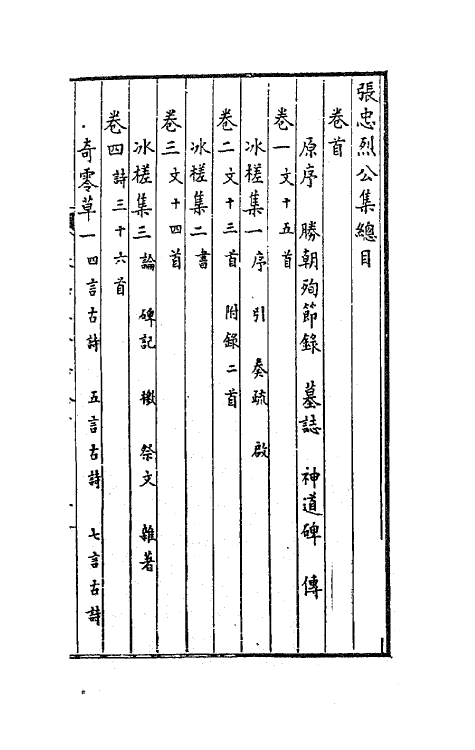 張忠烈公集總目
卷首
原序 勝朝殉節錄 墓誌 神道碑 傳
卷一文十五首
冰槎集一序 引 奏疏 啟
卷二文十三首 附錄二首
冰槎集二書
卷三文十四首
冰槎集三論 碑記 檄 祭文 雜著
卷四詩三十六首
奇零草一四言古詩 五言古詩 七言古詩